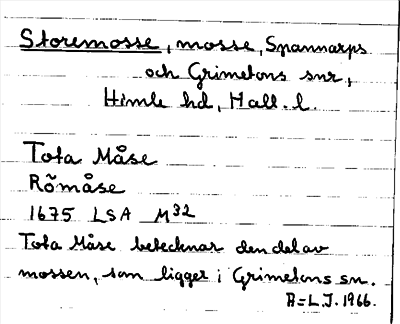 Storemosse, mosse, Spannarps
och Grimetons snr,
Himle hd, Hall. l.
Tota Måse
Rõmåse
1675 LSA M32
Tota Måse betecknar den del av
mossen, som ligger i Grimetons sn.
B=L.J. 1966.